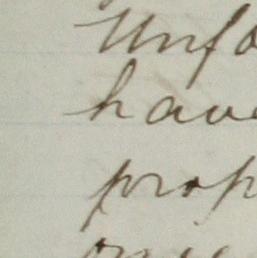 Unfo
have
prop